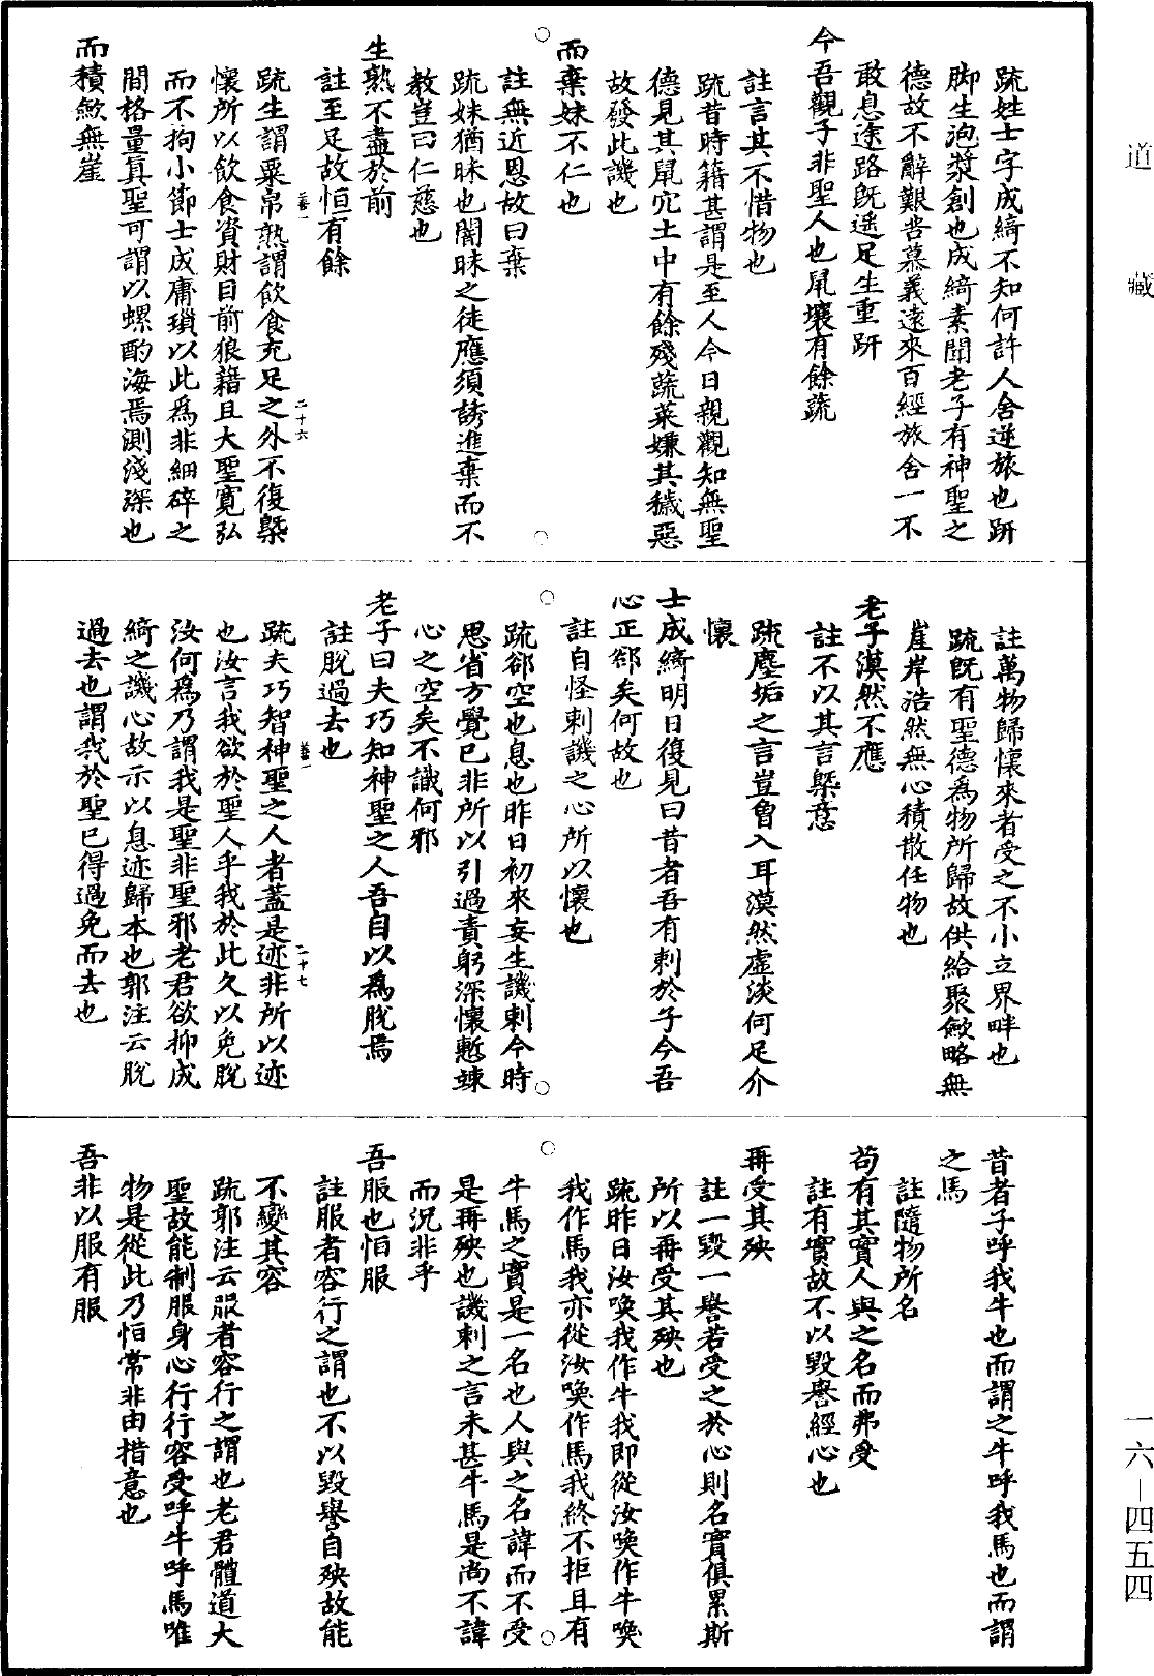 疏姓士字成綺不知何許人舍逆旅也趼
脚生泡漿創也成綺素聞老子有神聖之
德故不辭艱苦慕義遠來百經旅舍一不
敢息途路既遥足生重趼
今吾觀子非聖人也鼠壤有餘蔬
註言其不惜物也
疏昔時籍甚謂是至人今日親觀知無聖
德見其鼠穴土中有餘殘蔬菜嫌其穢惡
故發此譏也
而棄妹不仁也
註無近恩故曰棄
疏妹猶昧也闇昧之徒應須誘進棄而不
教豈曰仁慈也
生熟不盡於前
註至足故恒有餘
疏生謂粟帛熟謂飲食充足之外不復槩
懷所以飲食資財目前狼籍且大聖寬弘
而不拘小節士成庸瑣以此爲非細碎之
間格量真聖可謂以螺酌海焉測淺深也
而積斂無崖
二十六
註萬物歸懷來者受之不小立界畔也
疏既有聖德爲物所歸故供給聚斂略無
崖岸浩然無心積散任物也
老子漠然不應
註不以其言槩意
疏塵垢之言豈曾入耳漠然虛淡何足介
懷
士成綺明日復見曰昔者吾有刺於子今吾
心正郤矣何故也
註自怪刺譏之心所以懷也
疏郤空也息也昨日初來妄生譏刺今時
思省方覺已非所以引過責躬深懷慙竦
心之空矣不識何邪
老子曰夫巧知神聖之人吾自以爲脫焉
註脫過去也
疏夫巧智神聖之人者蓋是迹非所以迹
也汝言我欲於聖人乎我於此久以免脫
汝何爲乃謂我是聖非聖邪老君欲抑成
綺之譏心故示以息迹歸本也郭注云脫
過去也謂我於聖已得過免而去也
二十七
昔者子呼我牛也而謂之牛呼我馬也而謂
之馬
註隨物所名
苟有其實人與之名而弗受
註有實故不以毀譽經心也
再受其殃
註一毀一譽若受之於心則名實俱累斯
所以再受其殃也
疏昨日汝喚我作牛我即從汝喚作牛喚
我作馬我亦從汝喚作馬我終不拒且有
牛馬之實是一名也人與之名諱而不受
是再殃也譏刺之言未甚牛馬是尚不諱
而況非乎
吾服也怕服
註服者容行之謂也不以毀譽自殃故能
不變其容
疏郭注云服者容行之謂也老君體道大
聖故能制服身心行行容受呼牛呼馬唯
物是從此乃怕常非由措意也
吾非以服有服
道藏
一六—四五四